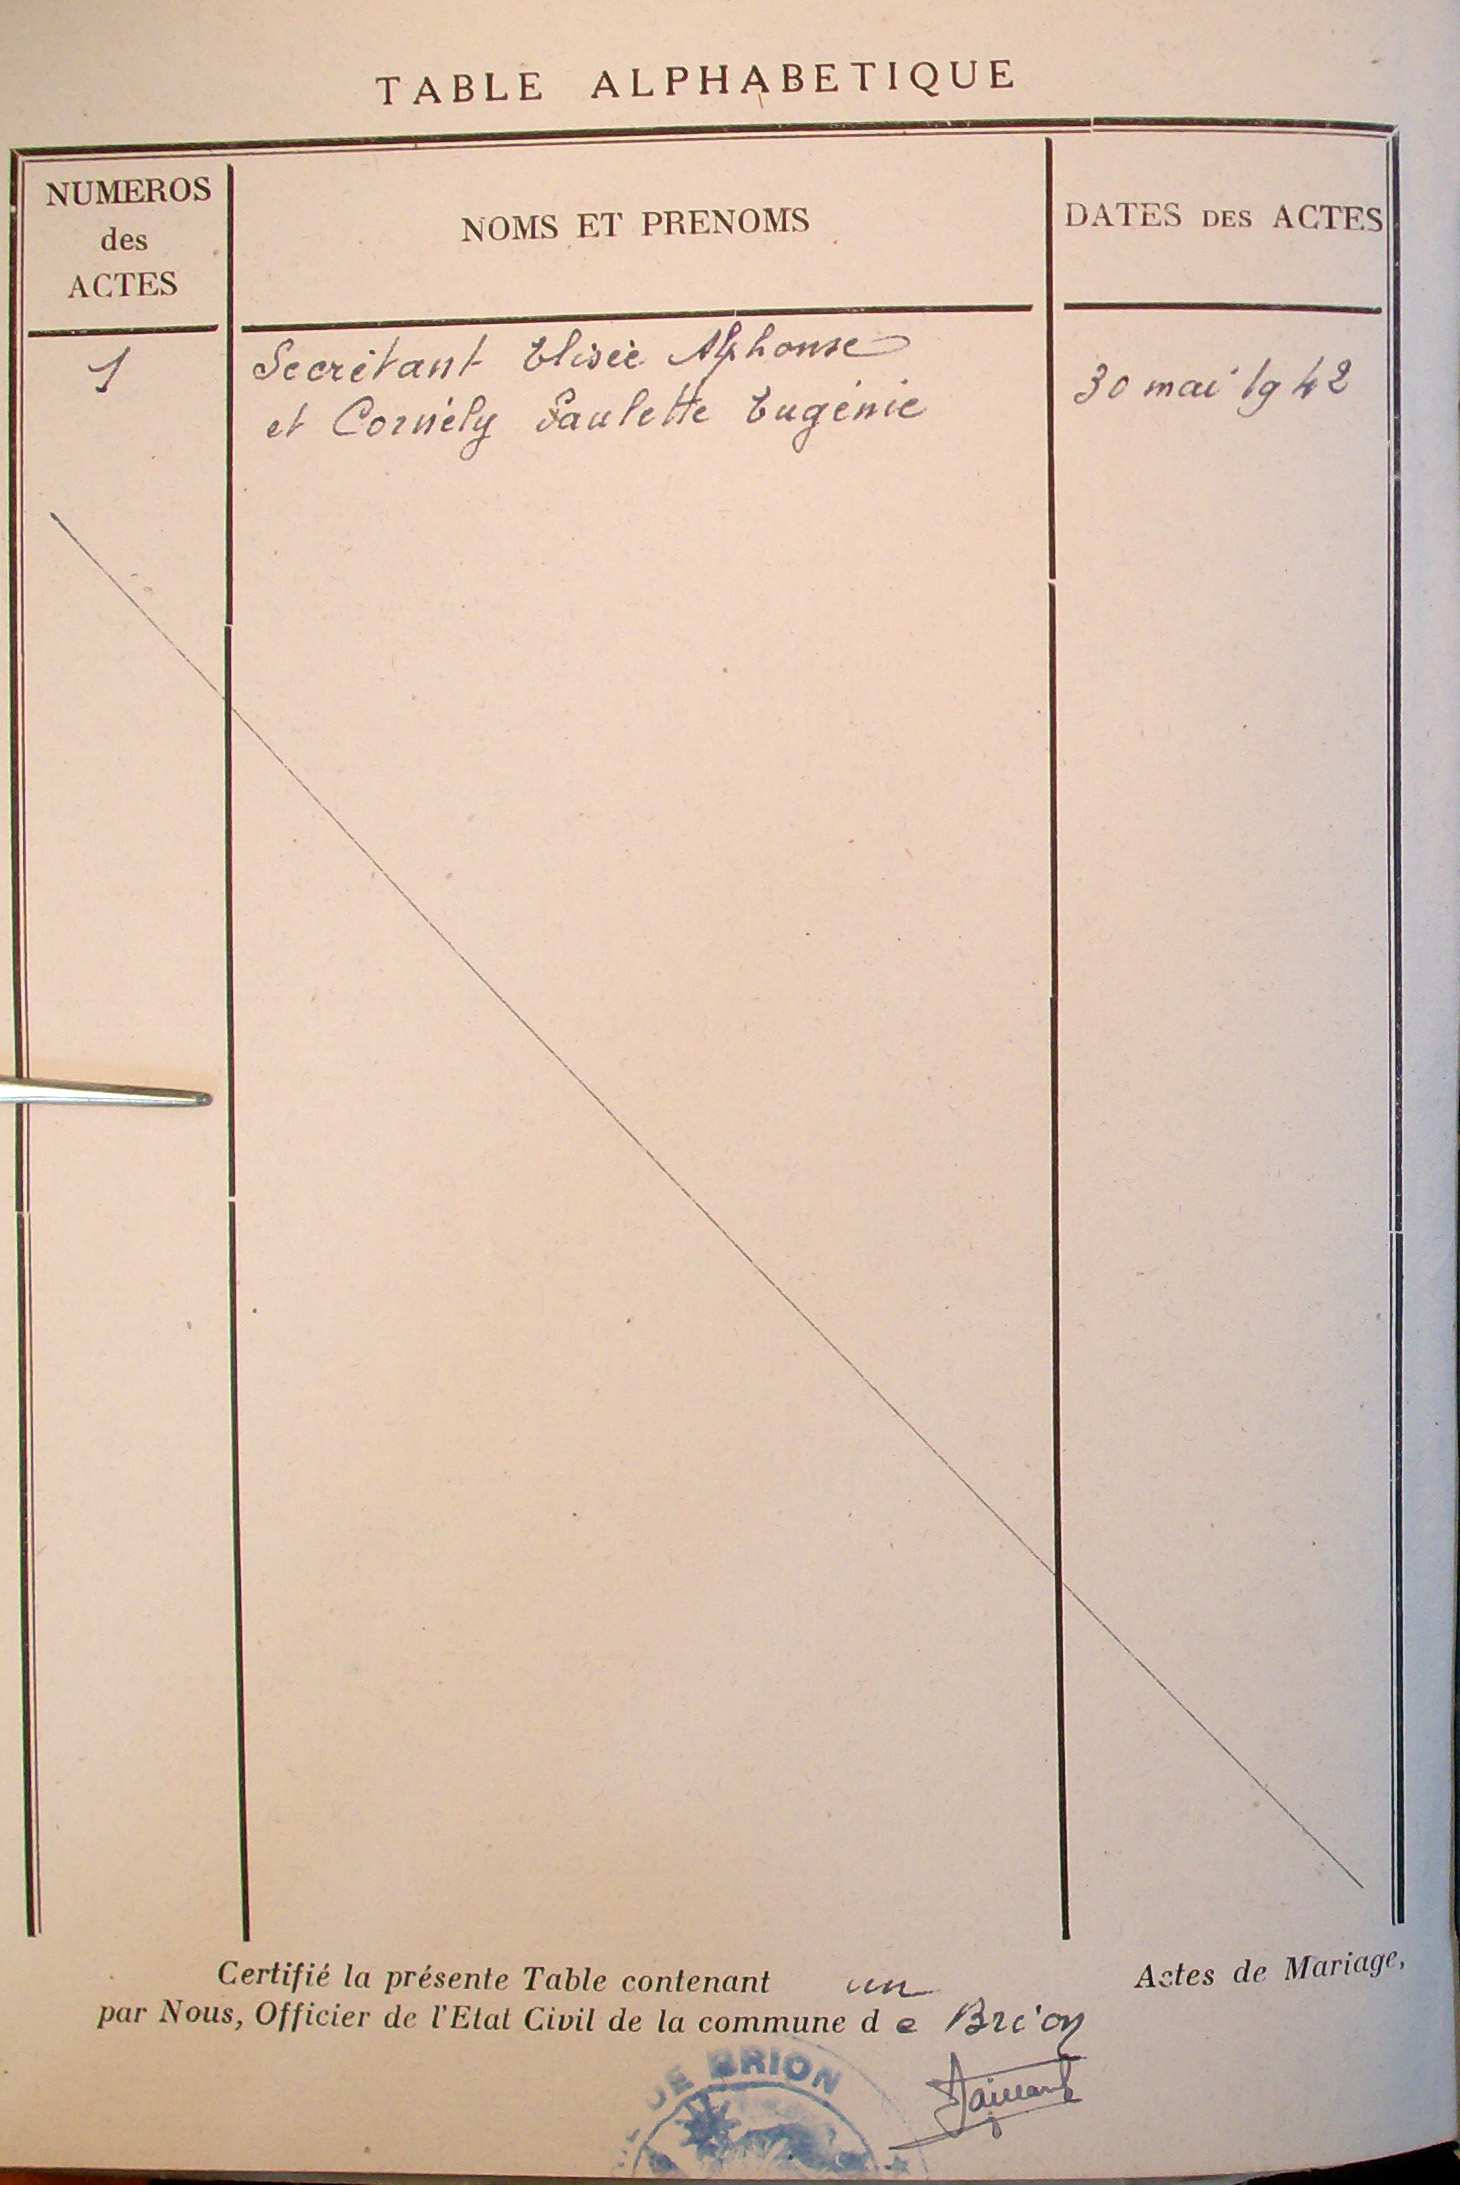 TABLE ALPHABETIQUE
NUMEROS
des
ACTES
NOMS ET PRENOMS
DATES DES ACTES
1
Secrétant Elisée Alphonse
et Cornély Paulette Eugénie
30 mai 1942
Certifié la présente Table contenant un Actes de Mariage,
par Nous, Officier de l'Etat Civil de la commune de Brion
DE BRION